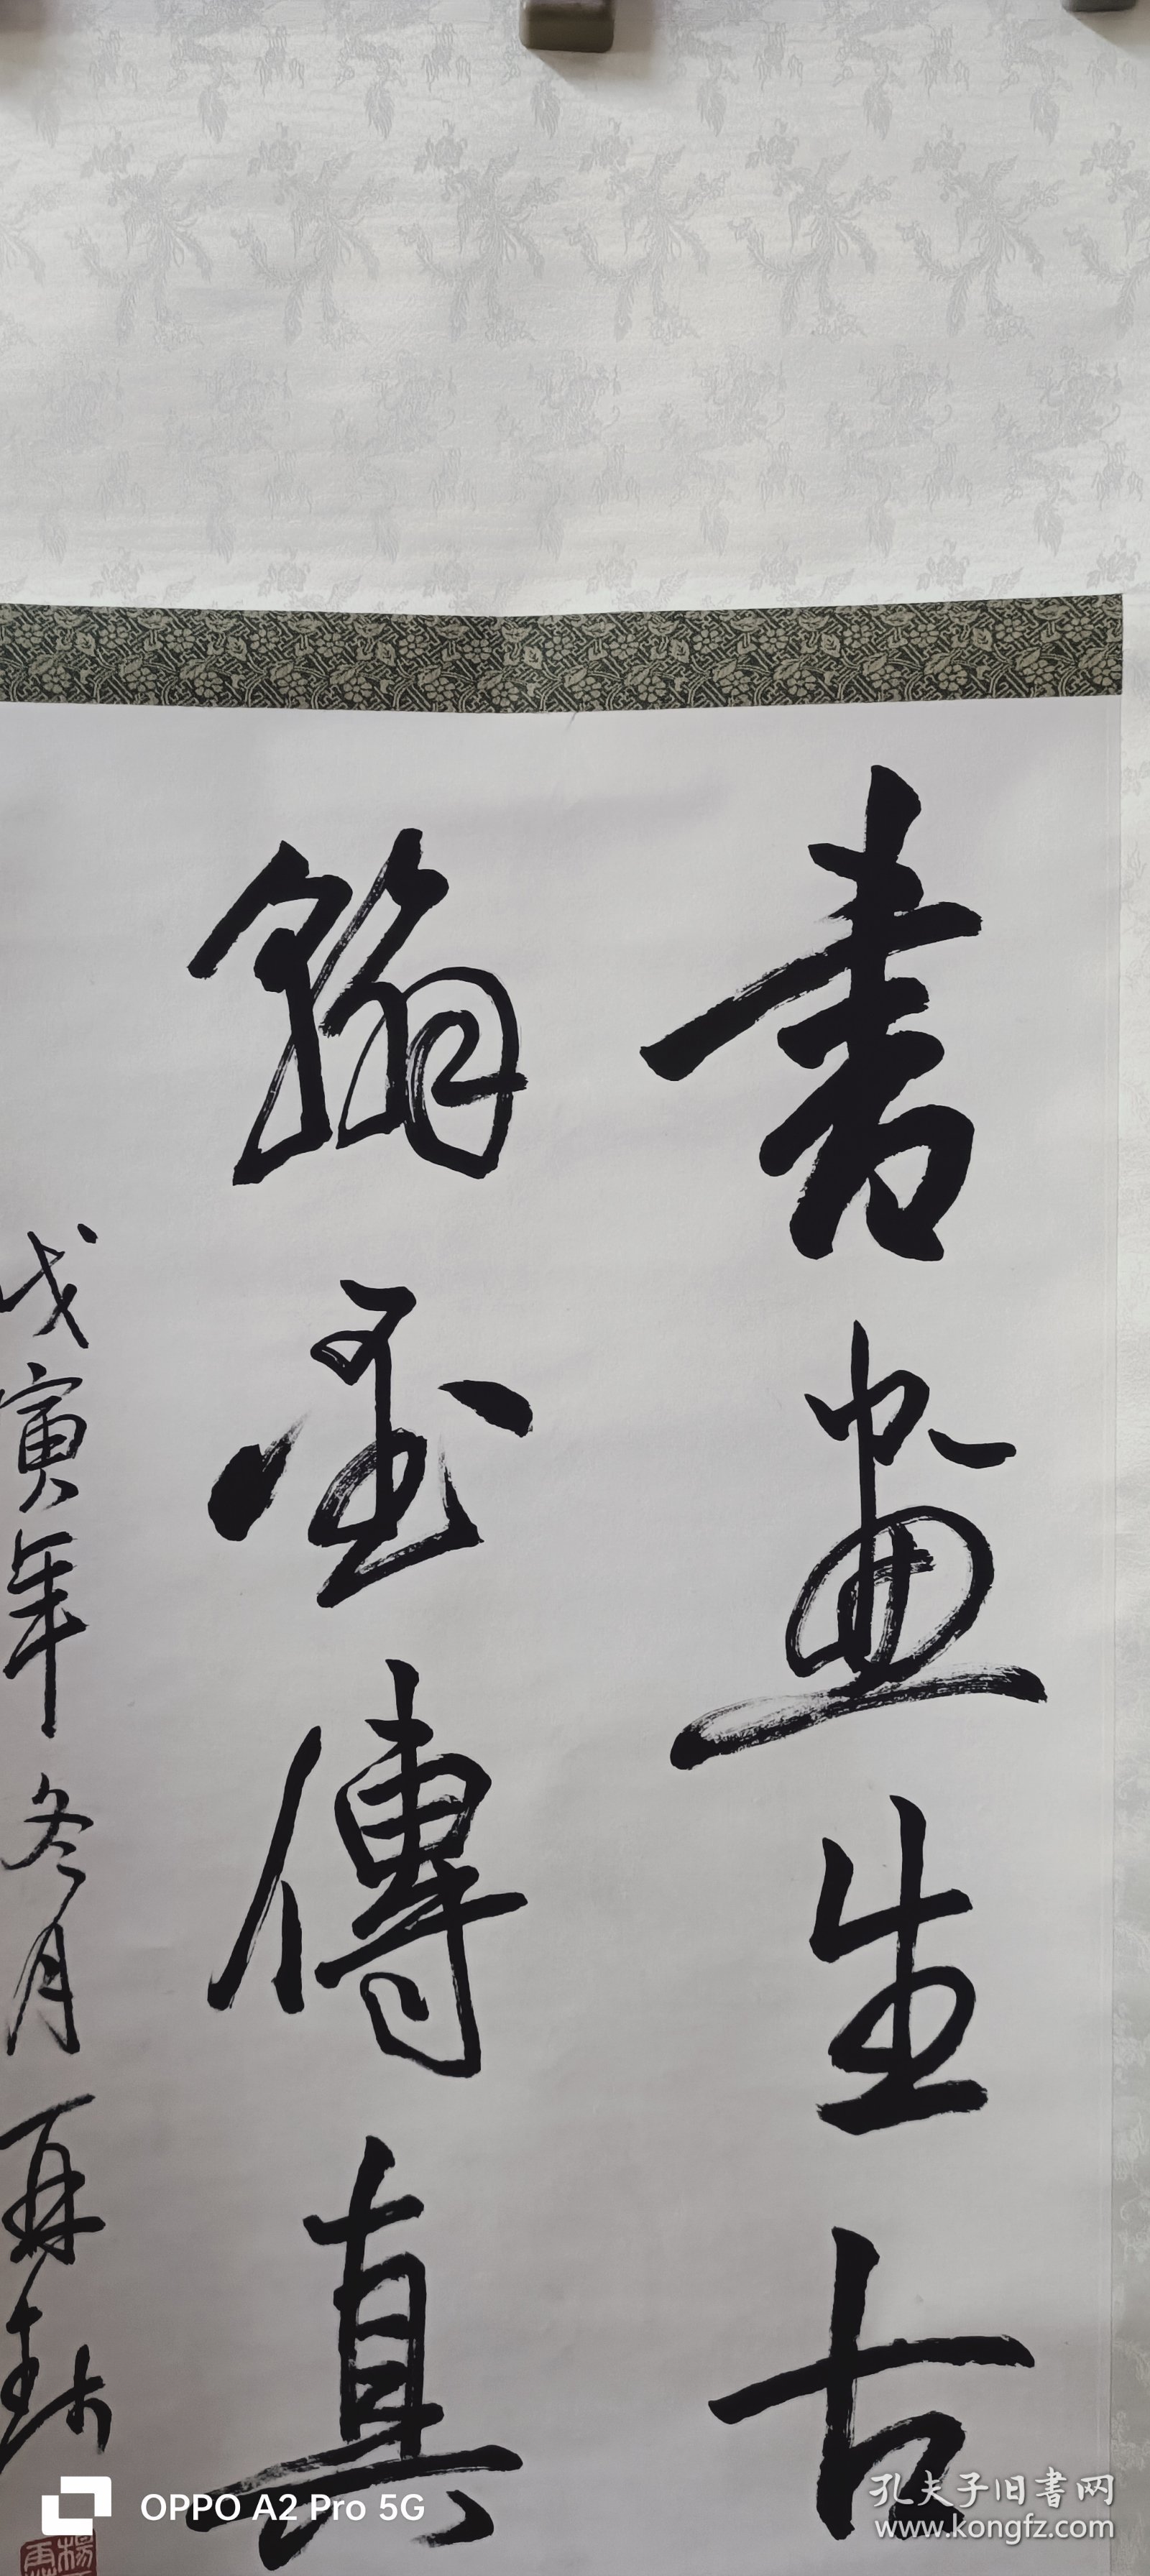 書畫生古
翰墨傳真
戊寅年冬月再春
OPPO A2 Pro 5G
孔夫子旧書网
www.kongfz.com